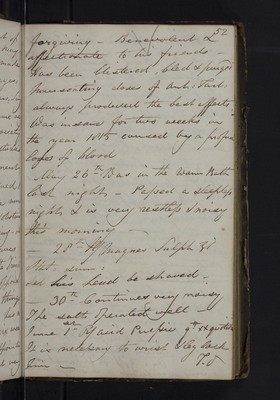 52
forgiving - Benevolent &
affectionate to his friends -
Has been blistered, bled & purged
nauseating doses of Ant. Tart.
always produced the best effects
Was insane for two weeks in
the year 1815 caused by a
loss of blood
May 26th Was in the Warm Bath
last night - Passed a sleepless
night & is very restless & noisy
this morning
28th Magnes Sulph
Stat sum:
let his head be shaved -
- 30th Continues very noisy
The salts operated well -
June 1st
It is necessary to wrist & leg lock
him -